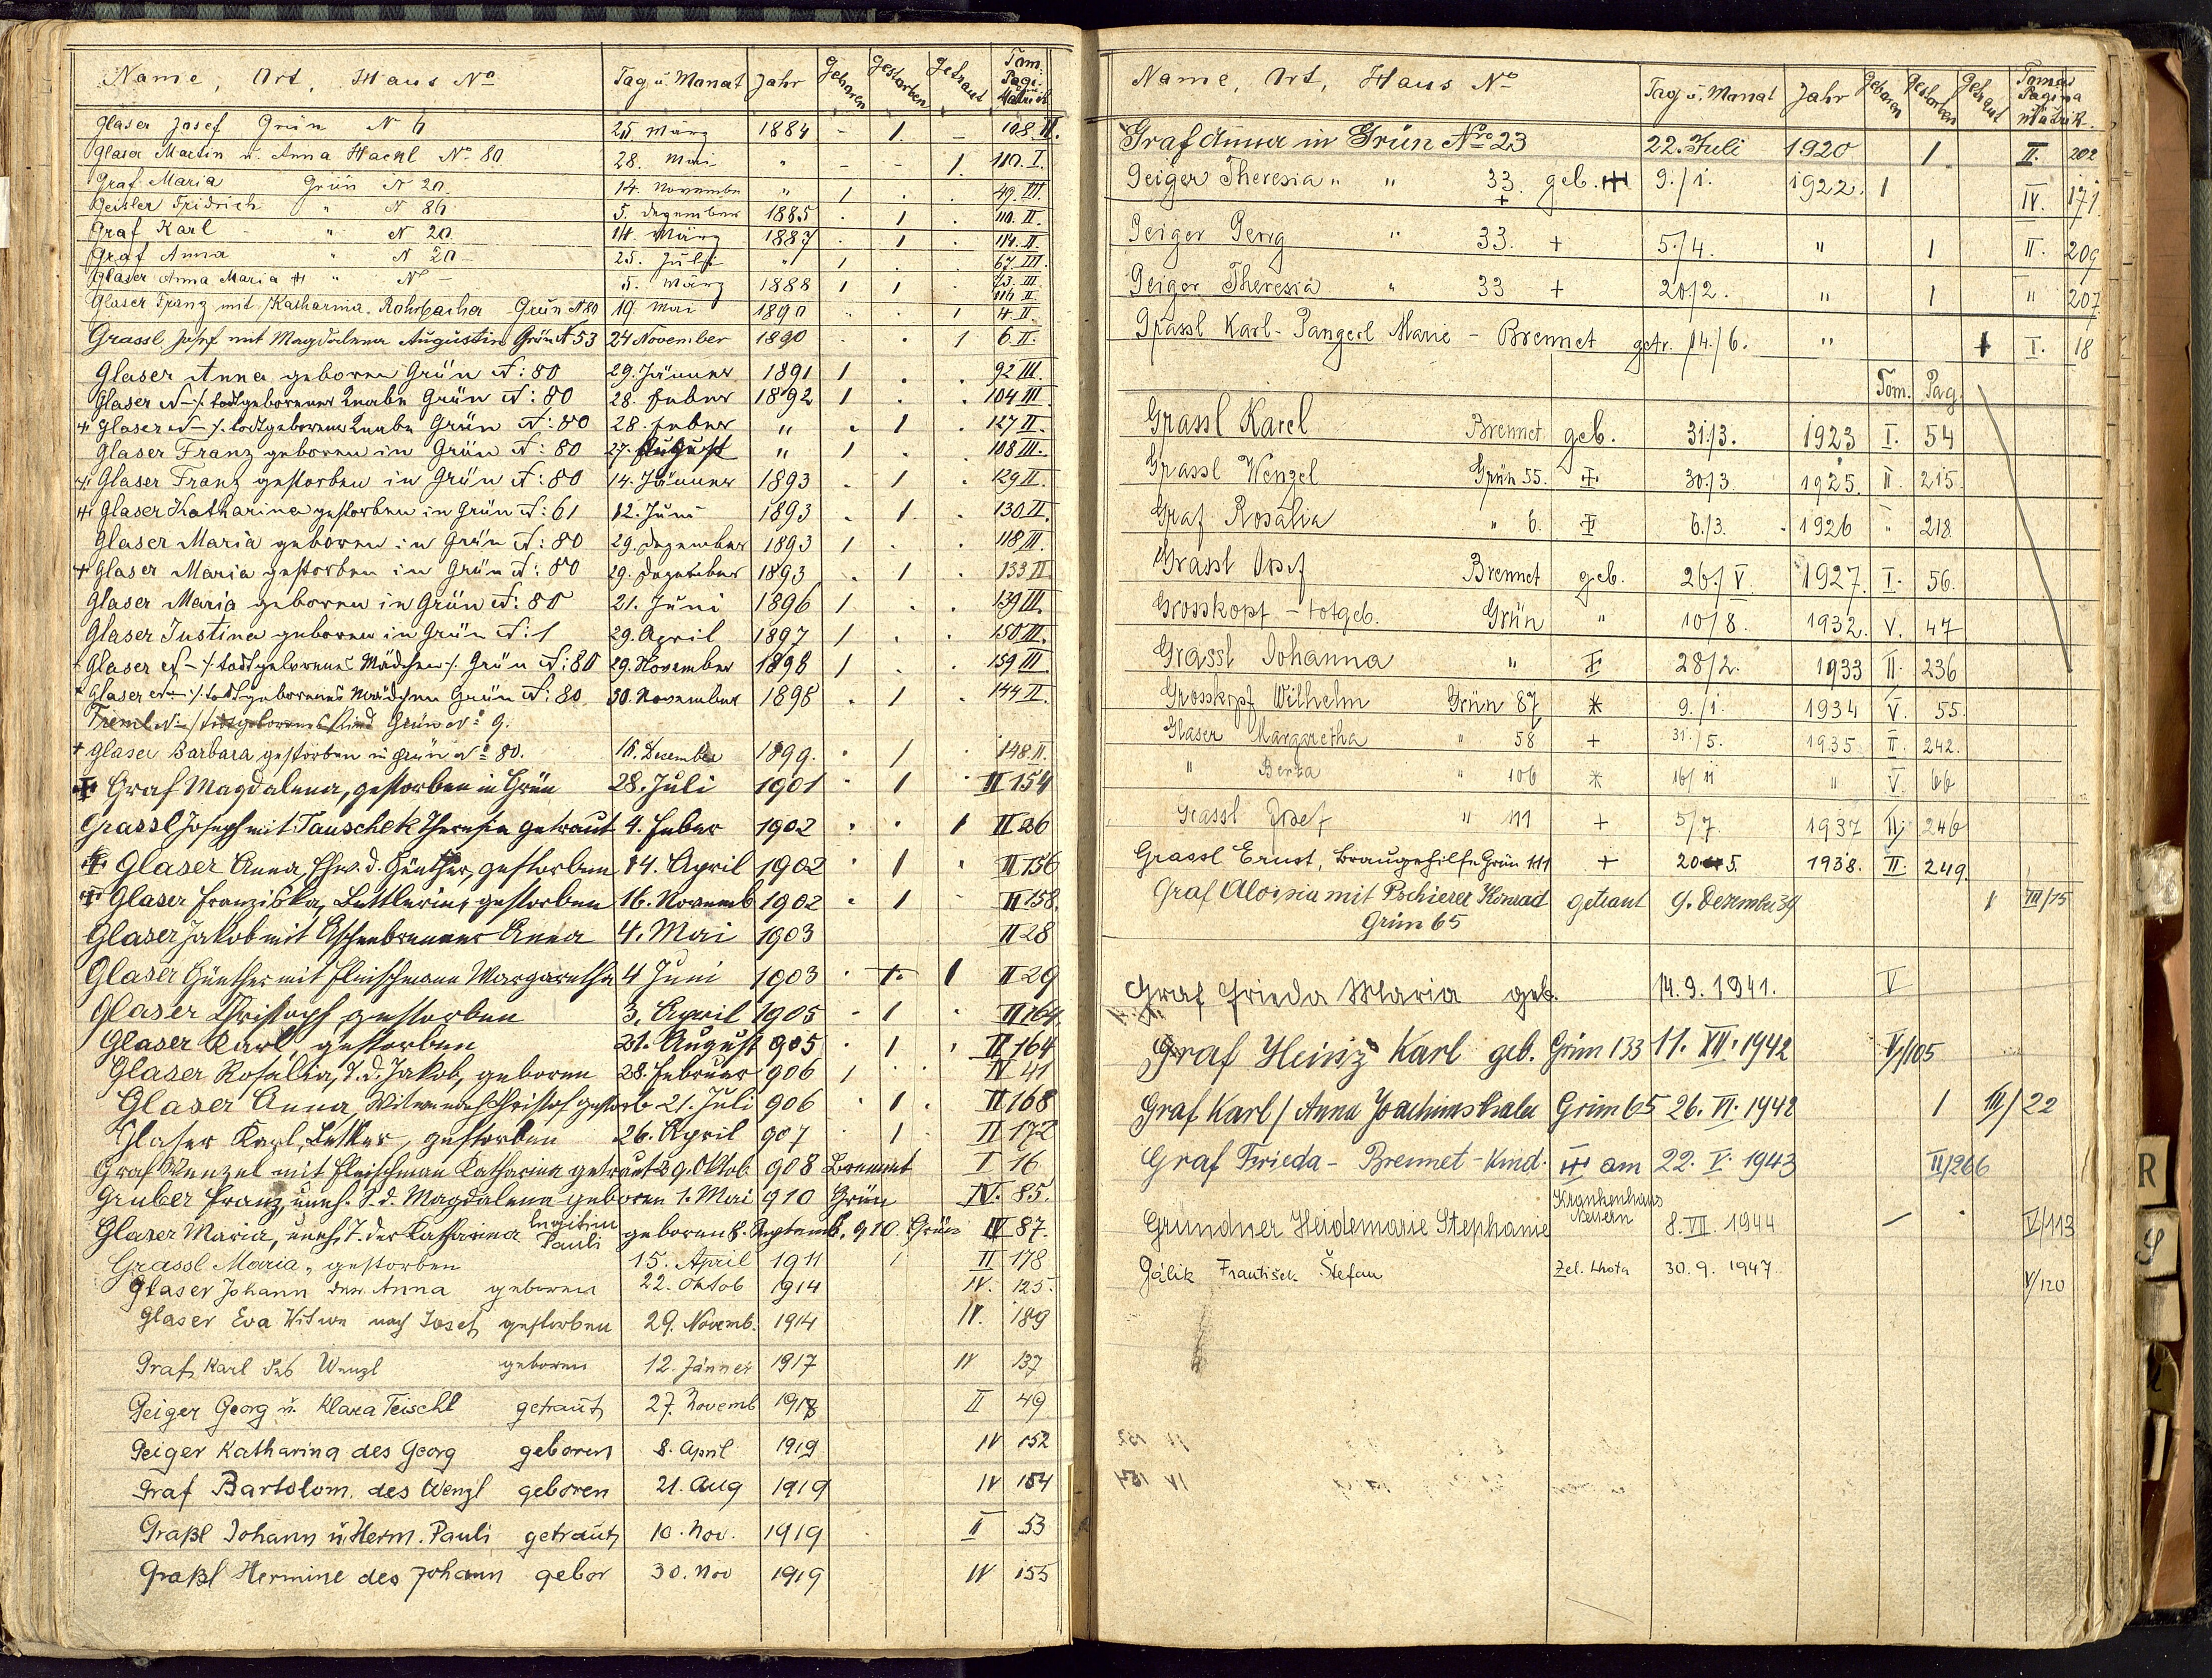 Name, Ort, Haus No Tag u. Monat Jahr Geboren Gestorben Getraut Tom. Pagi. Matrick
Glaser Josef Grün N 6 25 März 1884 - 1. - 108. II.
Glaser Martin u. Anna Hackl No. 80 28. Mai " - - 1. 110. I.
Graf Maria Grün N 20. 14. November " 1 . . 49. III.
Geisler Fridrich " N 86 5. Dezember 1885 . 1 . 110. II.
Graf Karl " N 20 14. März 1887 . 1 . 114. II.
Graf Anna " N 20 - 25. Juli " 1 . . 67. III.
Glaser Anna Maria " N - 5. März 1888 1 1 . 73. III. 116 II.
Glaser Franz mit Katharina Rohrbacher Grün N 80 19. Mai 1890 . . 1 4. II.
Grassl Josef mit Magdalena Augustin Grün N 53 24 November 1890 . . 1 6. II.
Glaser Anna geboren Grün N: 80 29. Jänner 1891 1 . . 92 III.
Glaser N- /: todtgeborener Knabe Grün N: 80 28. Feber 1892 1 . . 104 III.
Glaser N- /: todtgeborener Knabe Grün N: 80 28. Feber " . 1 . 127 II.
Glaser Franz geboren in Grün N: 80 27. August " 1 . . 108 III.
Glaser Franz gestorben in Grün N: 80 14. Jänner 1893 . 1 . 129 II.
Glaser Katharina gestorben in Grün N: 61 12. Juni 1893 . 1. . 130 II.
Glaser Maria geboren in Grün N: 80 29. Dezember 1893 1 . . 118 III.
+ Glaser Maria gestorben in Grün N: 80 29. Dezember 1893 . 1 . 133 II
Glaser Maria geboren in Grün N: 80 21. Juni 1896 1 . . 139 III.
Glaser Justina geboren in Grün N: 1 29. April 1897 1 . . 150 III.
Glaser N- /: todtgeborenes Mädchen /. Grün N: 80 29. November 1898 1 . . 159 III
Glaser N- /: todtgeborenes Mädchen Grün N: 80 30. November 1898 . 1 . 144 II.
Treml N- / totgeborenes Kind Grün No 9.
+ Glaser Barbara gestorben in Grün No 80. 16. Dezember 1899. . 1 . 148. II.
Graf Magdalena, gestorben in Grün 28. Juli 1901 . 1 . II 154
Grassl Joseph mit Tauschek Theresia getraut 4. Feber 1902 . . 1 II 26
Glaser Anna, Ehew. d. Günther, gestorben 14. April 1902 . 1 . II 156
Glaser Franziska, Bettlerin, gestorben 16. Novemb 1902 . 1 - II 158.
Glaser Jakob mit Aschenbrenner Anna 4. Mai 1903 II 28
Glaser Günther mit Fleischmann Margaretha 4 Juni 1903 . 1 II 29
Glaser Christoph gestorben 3. April 1905 - 1 . II 164.
Glaser Karl, gestorben 21. August 905 . 1 . II 164
Glaser Rosalia, T. d. Jakob, geboren 28. Februar 906 1 . . IV 41
Glaser Anna, Witwe nach Christof gestorb. 21. Juli 906 . 1 . II 168
Glaser Karl, gestorben 26. April 907 . 1 . II 172
Graf Wenzel mit Fleischman Katharina getraut 29. Oktob 908 Brennet I 16
Gruber Franz, uneh. S. d. Magdalena geboren 1. Mai 910 Grün IV. 85.
Glaser Maria, uneh. T. der Katharina Legitim Pauli geboren 8. Septemb. 910. Grün IV 87.
Grassl Maria, gestorben 15. April 1911 1 II 178
Glaser Johann der Anna geboren 22. Oktob 1914 IV. 125.
Glaser Eva Witwe nach Josef gestorben 29. Novemb. 1914 IV. 189
Graf Karl des Wenzl geboren 12. Jänner 1917 IV 137
Geiger Georg u. Klara Teischl getraut 27. Novemb 1918 II 49
Geiger Katharina des Georg geboren 8. April 1919 IV 152
Graf Bartolom. des Wenzl geboren 21. Aug 1919 IV 154
Graßl Johann u. Herm. Pauli getraut 10. Nov. 1919 II 53
Graßl Hermine des Johann gebor 30. Nov 1919 IV 155
Name, Ort, Haus No Tag u. Monat Jahr Geboren Gestorben Getraut Tomus Pagina Matrik.
Graf Anna in Grün Nro 23 22. Juli 1920 1 II. 202
Geiger Theresia " " 33. geb. 9./1. 1922. 1 IV. 171
Geiger Georg " 33. + 5./4. " 1 II. 209
Geiger Theresia " 33 + 20./2. " 1 " 207
Grassl Karl - Pangerl Marie - Brennet getr. 14./6. " 1 I. 18
Tom. Pag.
Grassl Karel Brennet geb. 31./3. 1923 I. 54
Grassl Wenzel Grün 55. 30./3. 1925. II. 215.
Graf Rosalia " 6. 6./3. 1926 " 218
Grassl Josef Brennet geb. 26./V. 1927. I. 56.
Grosskopf - totgeb. Grün " 10/8. 1932. V. 47
Grassl Johanna " 28/2. 1933 II. 236
Grosskopf Wilhelm Grün 87 * 9./1. 1934 V. 55.
Glaser Margaretha " 58 + 31./5. 1935 II. 242.
" Berta " 106 * 16/11 " V. 66
Grassl Josef " 111 + 5/7. 1937 II. 246
Grassl Ernst, Braugehilfe Grün 111 + 20 5. 1938. II. 249.
Graf Aloisia mit Pschierer Konrad getraut 9. Dezember 39 1 III/15
Grün 65
Graf Frieda Maria geb. 14. 9. 1941. V
Graf Heinz Karl geb. Grün 133 11. XII. 1942 V/105
Graf Karl / Anna Joachimsthaler Grün 65 26. VI. 1942 1 III/22
Graf Frieda - Brennet - Kind. am 22. V. 1943 II/266
Krankenhaus Neuern
Grundner Heidemarie Stephanie 8. VII. 1944 - . V/113
Gálik František Štefan Zel. Lhota 30. 9. 1947 V/120
R
S